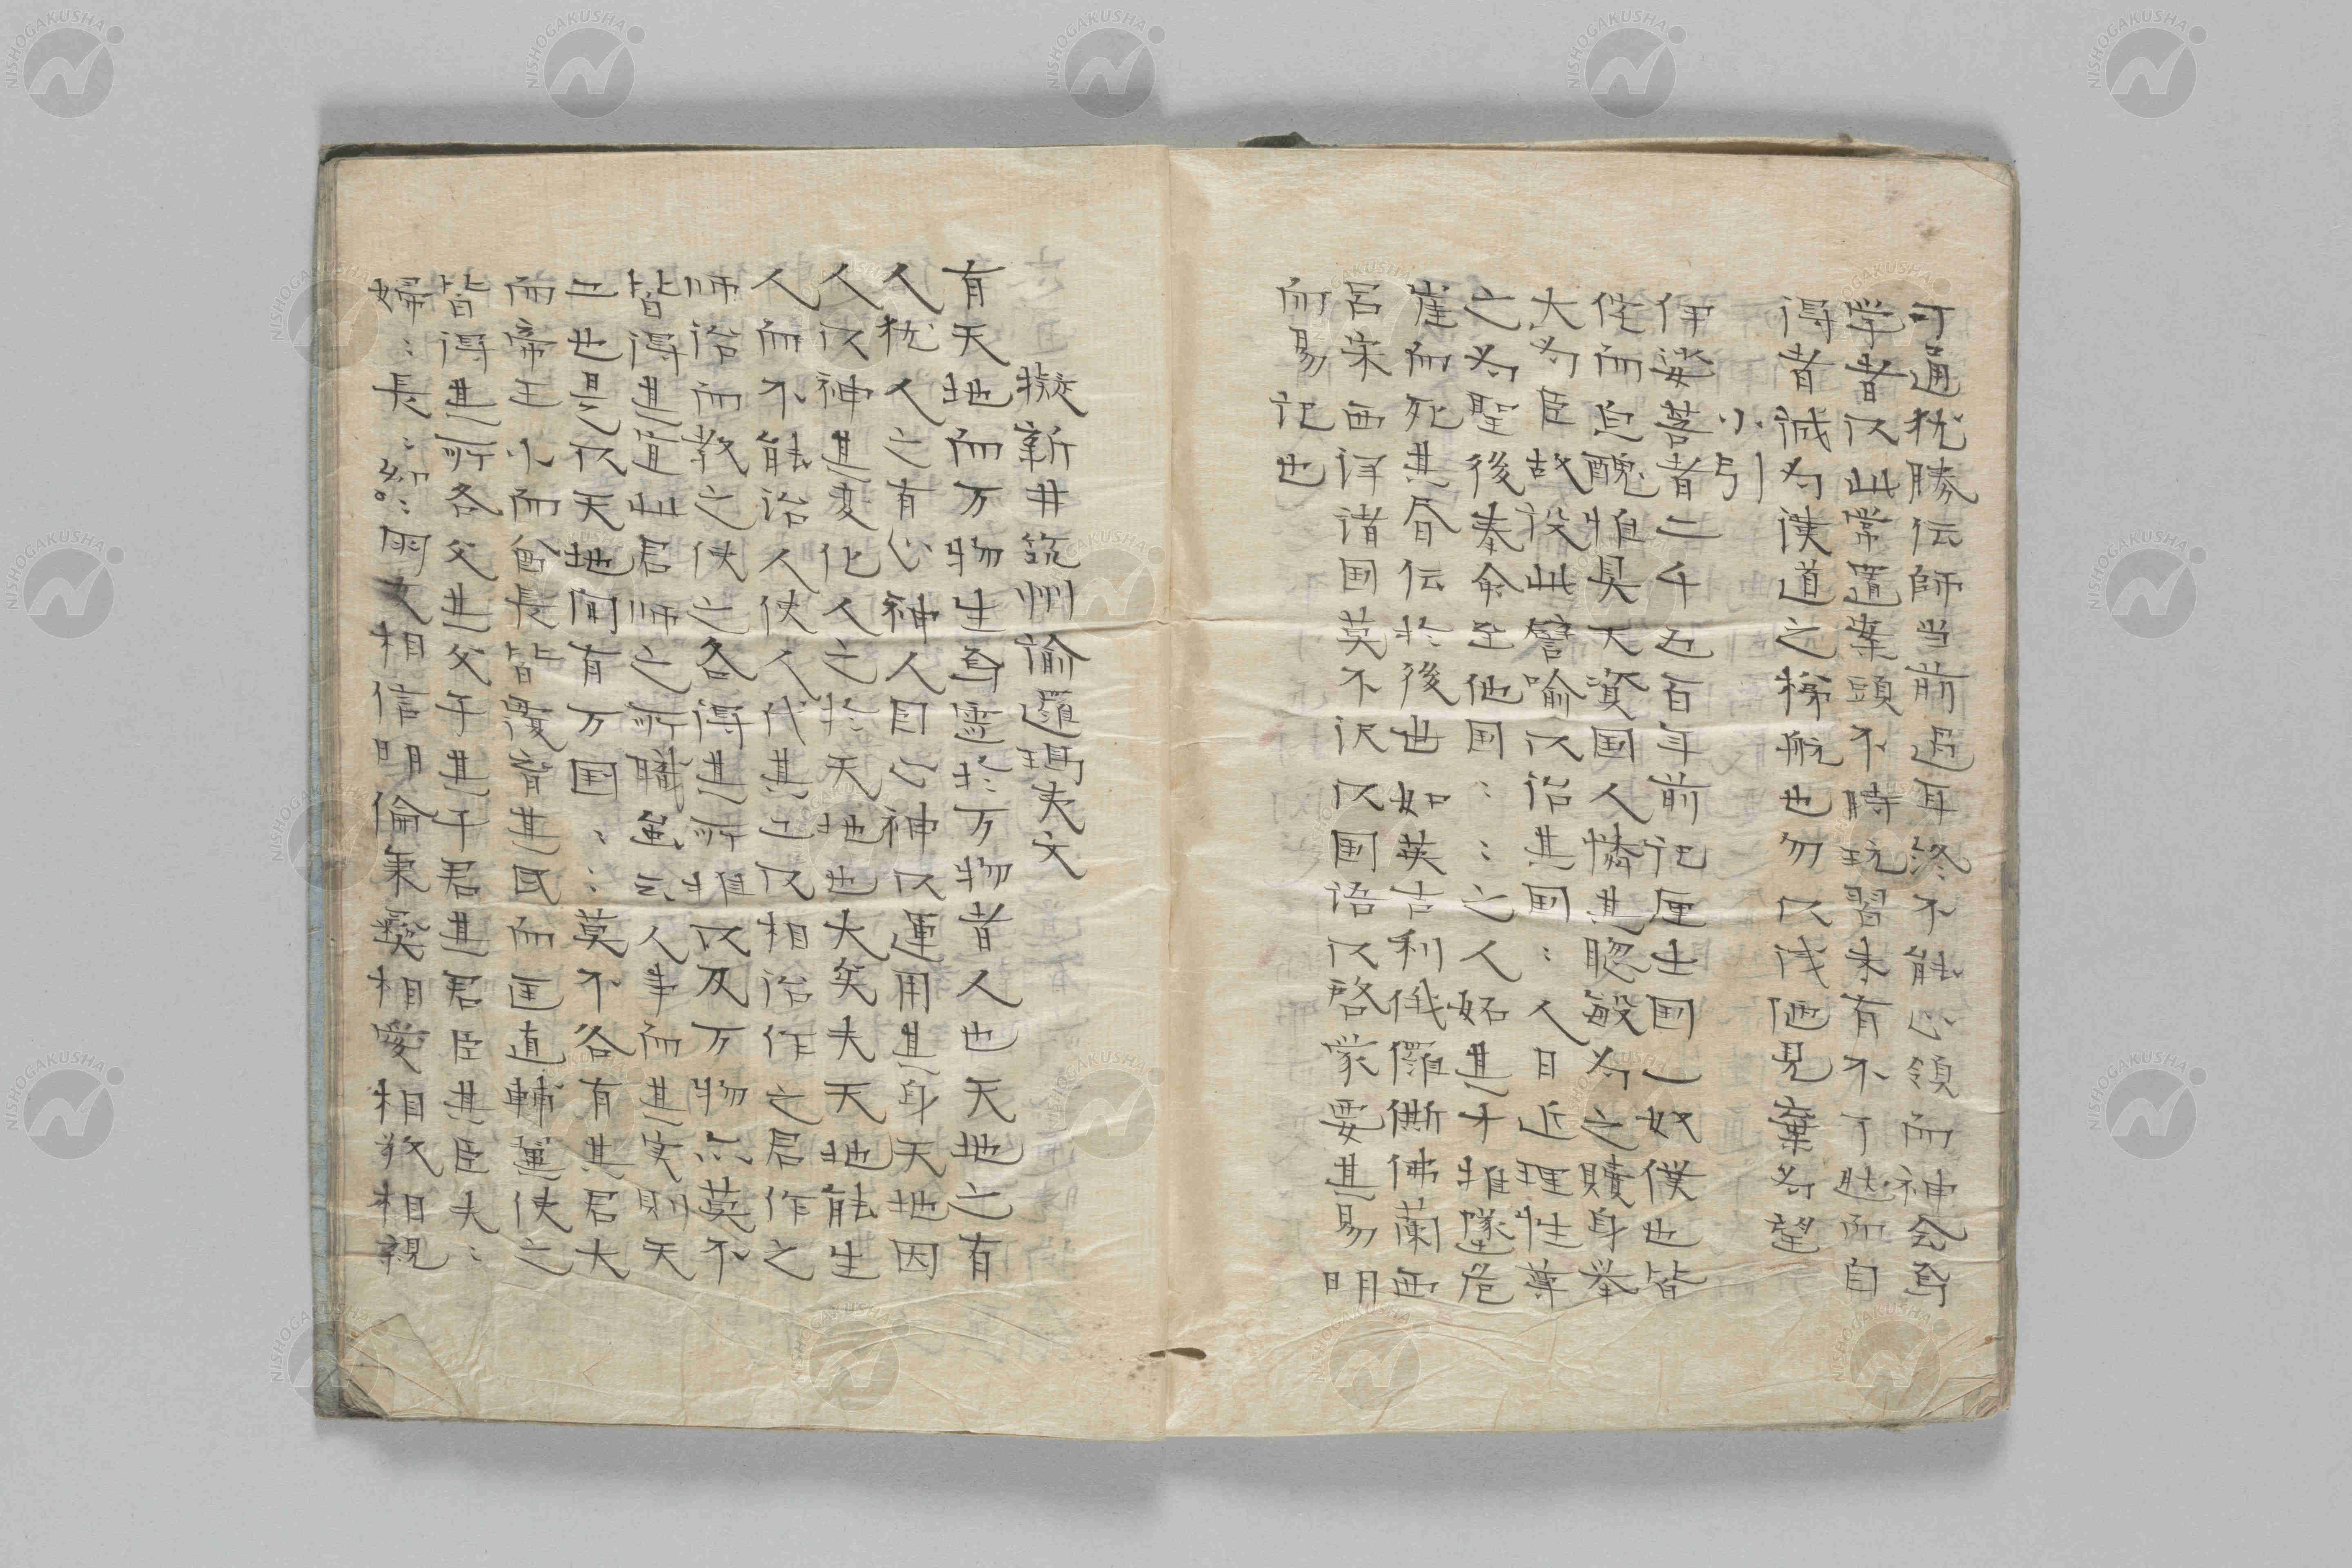 可通犹勝伝師当前過耳終不能心領而神会耳
学者以此常置案頭不時玩習未有不了然而自
得者誠为漢道之梯航也勿以浅陋見棄为望
小引
伊娑菩者二千五百年前記厘士国一奴僕也皆
侘而皃醜惟具天資国人憐其聡敏为之贖身举
大为臣故設此譬喻以治其国〻人日近理性薄
之为聖後奉命至他国〻〻之人妬其才推墜危
崖而死其昏伝於後世如英吉利俄羅斯佛蘭西
呂宋西洋诸国莫不訳以国语以啓蒙要其易明
而易記也
擬新井筑州諭邏瑪夫文
有天地而万物生耳霊於万物者人也天地之有
人犹人之有心神人因心神以運用其身天地因
人以神其変化人之於天地也大矣夫天地能生
人而不能治人使人代其工以相治作之君作之
师治而教之使之各得其所推以及万物六莫不
皆得其宜此君师之所職虽云人事而其实則天
工也是以天地间有万国〻〻莫不各有其君大
而帝王小而酋長皆覆育其民而匡直輔翼使之
皆得其所各父其父子其子君其君臣其臣夫〻
婦〻長〻幼〻朋友相信明倫秉彝相愛相敬相親
NISHOGAKUSHA